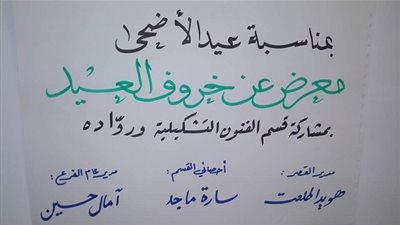 بمناسبة عيد الأضحى
معرض عن خروف العيد
بمشاركة قسم الفنون التشكيلية وروّاده
مدير القصر: أخصائي القسم: مدير عام الفرع:
هويدا طلعت سارة ماجد آمال حسين